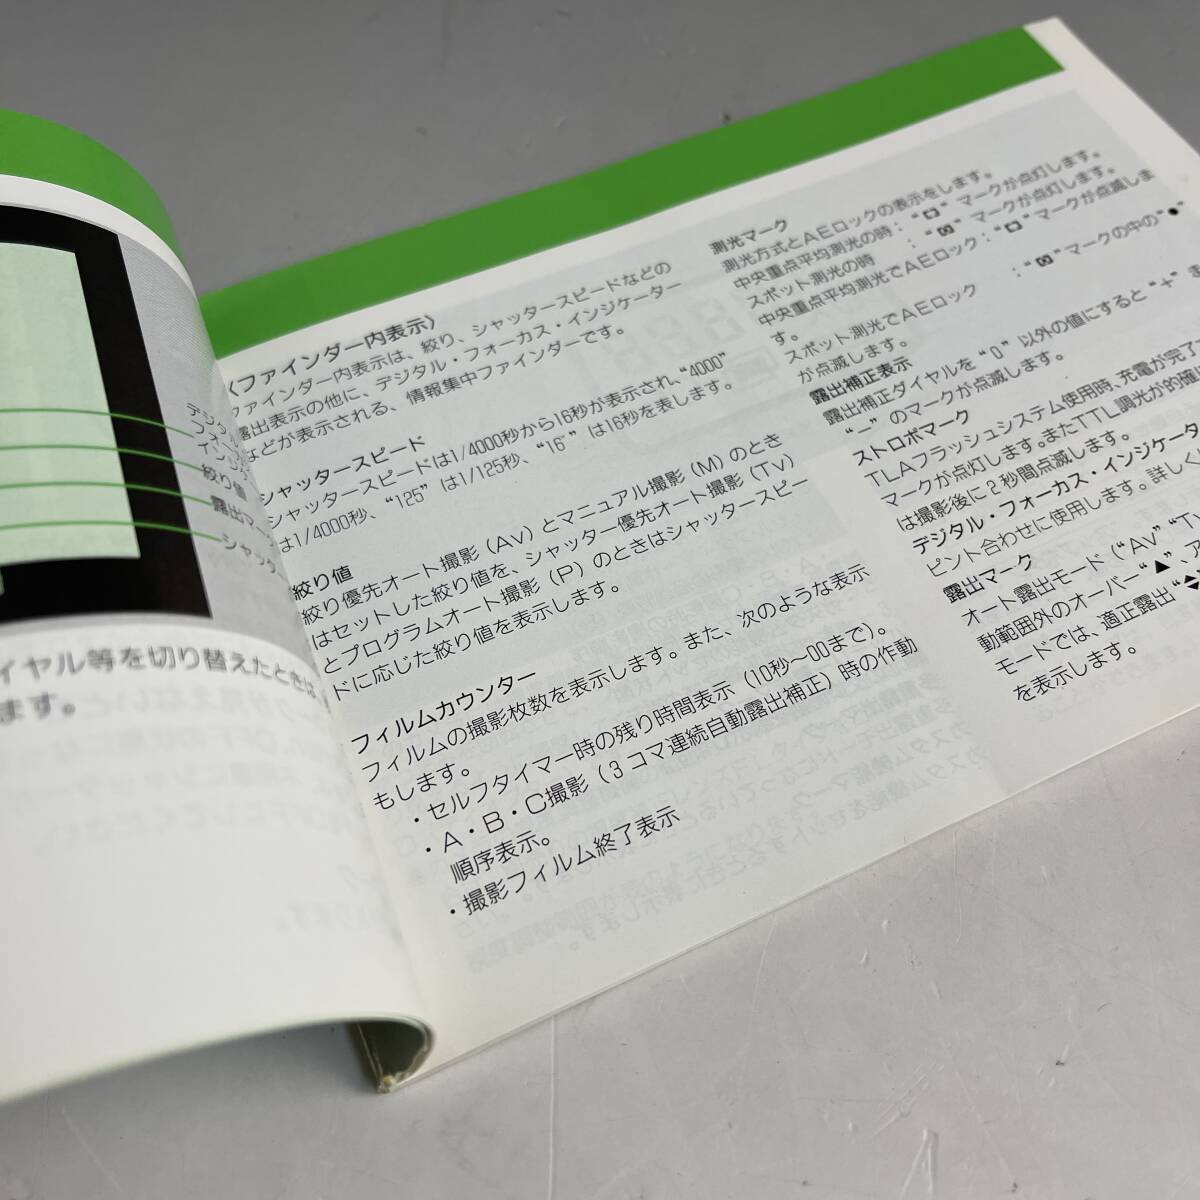 デジタル
フォーカス
インジケ
絞り値
露出マー
シャッター
イヤル等を切り替えたときは
ます。
〈ファインダー内表示〉
ファインダー内表示は、絞り、シャッタースピードなどの
露出表示の他に、デジタル・フォーカス・インジケーター
などが表示される、情報集中ファインダーです。
シャッタースピード
シャッタースピードは1/4000秒から16秒が表示され、“4000”
は1/4000秒、“125”は1/125秒、“16”は16秒を表します。
絞り値
絞り優先オート撮影(AV)とマニュアル撮影(M)のとき
はセットした絞り値を、シャッター優先オート撮影(TV)
とプログラムオート撮影(P)のときはシャッタースピー
ドに応じた絞り値を表示します。
フィルムカウンター
フィルムの撮影枚数を表示します。また、次のような表示
もします。
・セルフタイマー時の残り時間表示(10秒〜00まで)。
・A・B・C撮影(3コマ連続自動露出補正)時の作動
順序表示。
・撮影フィルム終了表示
測光マーク
測光方式とAEロックの表示をします。
中央重点平均測光の時:“ ”マークが点灯します。
スポット測光の時 :“ ”マークが点灯します。
中央重点平均測光でAEロック:“ ”マークが点滅しま
す。
スポット測光でAEロック :“ ”マークの中の“●”
が点滅します。
露出補正表示
露出補正ダイヤルを“0”以外の値にすると“+” ま
“−”のマークが点滅します。
ストロボマーク
TLAフラッシュシステム使用時、充電が完了す
マークが点灯します。またTTL調光が的確に
は撮影後に2秒間点滅します。
デジタル・フォーカス・インジケータ
ピント合わせに使用します。詳しくは
露出マーク
オート露出モード(“AV”“T
動範囲外のオーバー“▲”、ア
モードでは、適正露出“
を表示します。